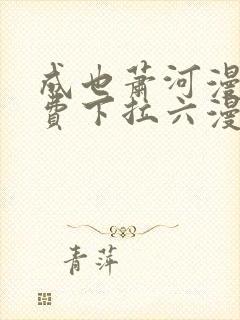 成也萧河漫
费下拉六漫
青萍